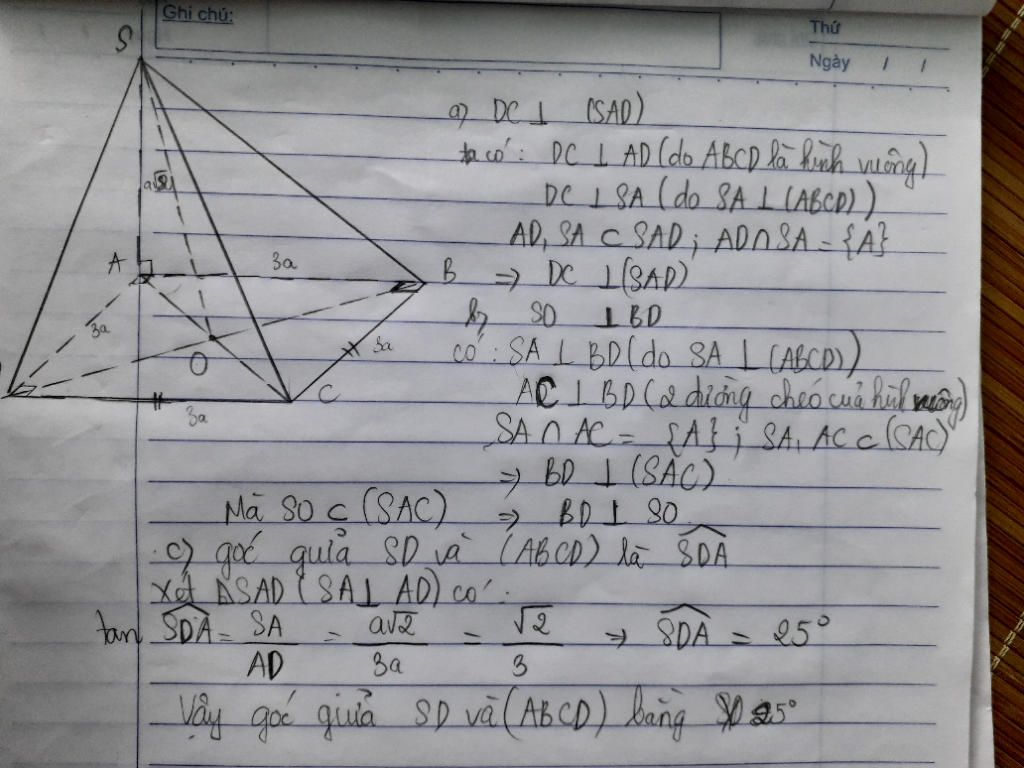 Ghi chú:
Thứ
Ngày / /
S
a√2
A
3a
B
3a
O
3a
C
3a
a) DC ⊥ (SAD)
ta có: DC ⊥ AD (do ABCD là hình vuông)
DC ⊥ SA (do SA ⊥ (ABCD))
AD, SA ⊂ SAD; AD ∩ SA = {A}
⇒ DC ⊥ (SAD)
b) SO ⊥ BD
có: SA ⊥ BD (do SA ⊥ (ABCD))
AC ⊥ BD (2 đường chéo của hình vuông)
SA ∩ AC = {A}; SA, AC ⊂ (SAC)
⇒ BD ⊥ (SAC)
Mà SO ⊂ (SAC) ⇒ BD ⊥ SO.
c) góc giữa SD và (ABCD) là \widehat{SDA}
Xét ΔSAD (SA ⊥ AD) có:
tan \widehat{SDA} = SA/AD = a√2/3a = √2/3 ⇒ \widehat{SDA} = 25°
Vậy góc giữa SD và (ABCD) bằng 25°